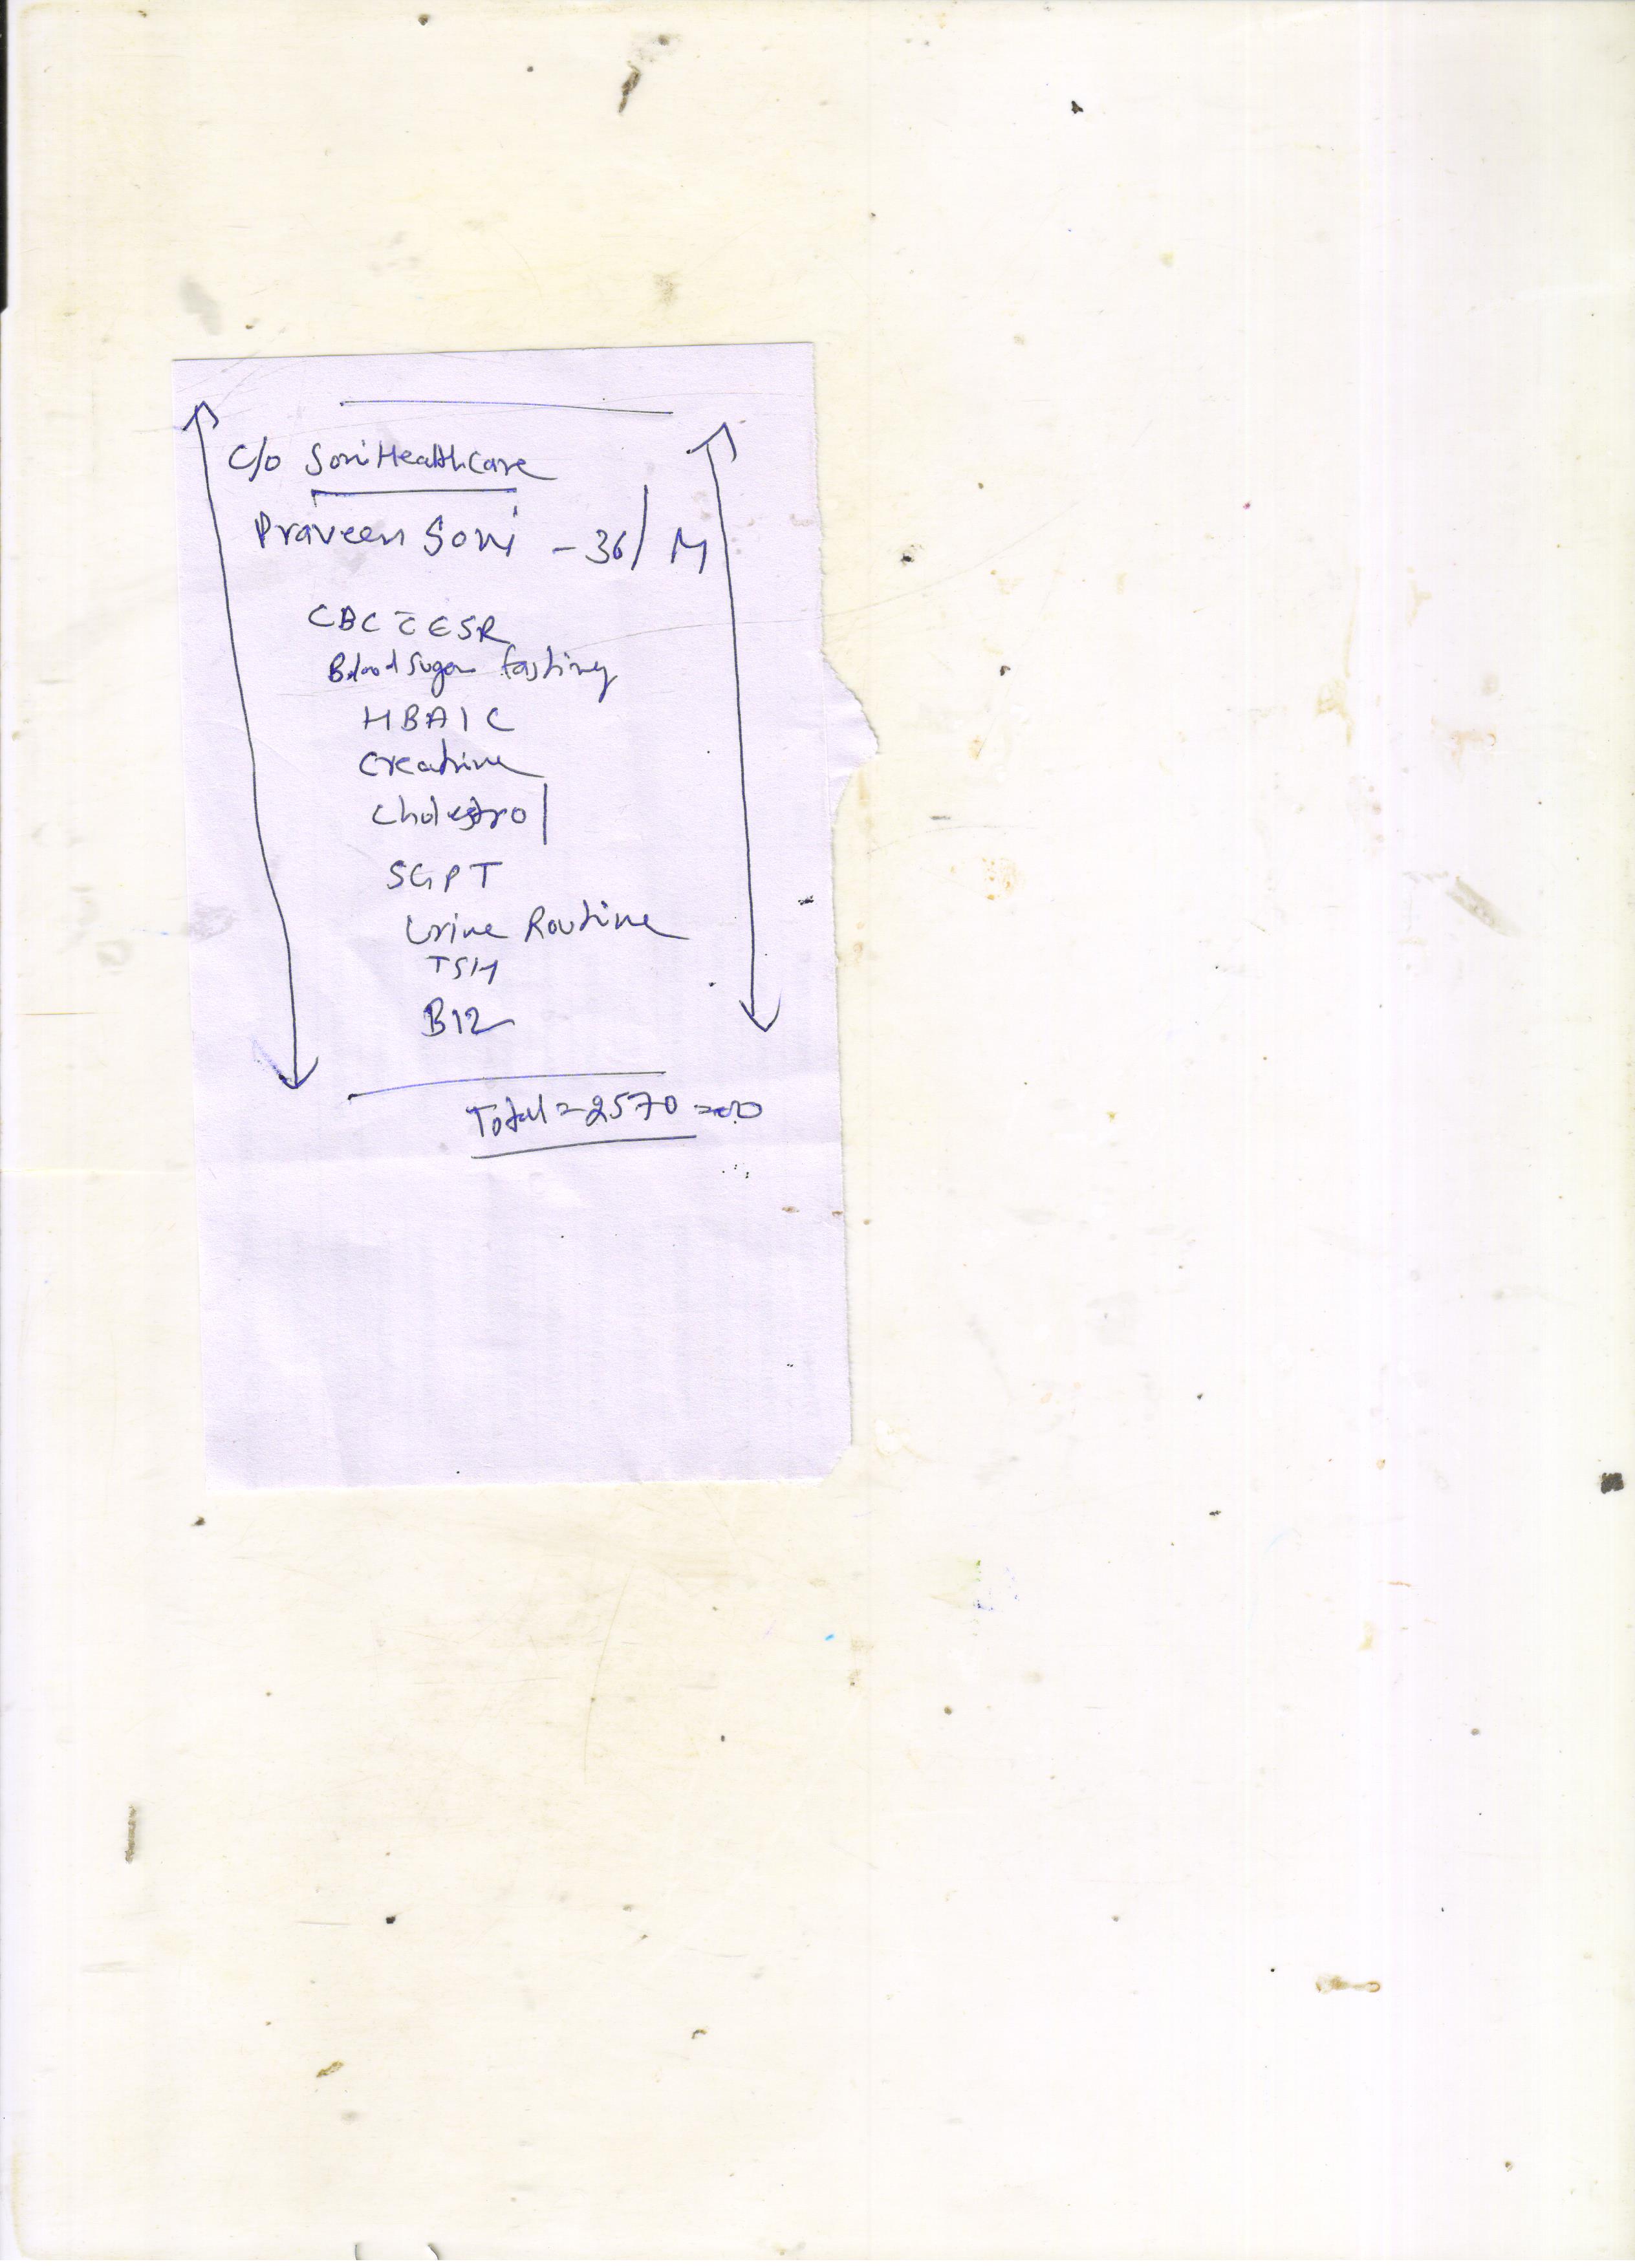 C/o Soni HealthCare
Praveen Soni - 36/M
CBC c̄ ESR
Blood Sugar fasting
HBA1C
Creatine
Cholestrol
SGPT
Urine Routine
TSH
B12
Total = 2570 = 00